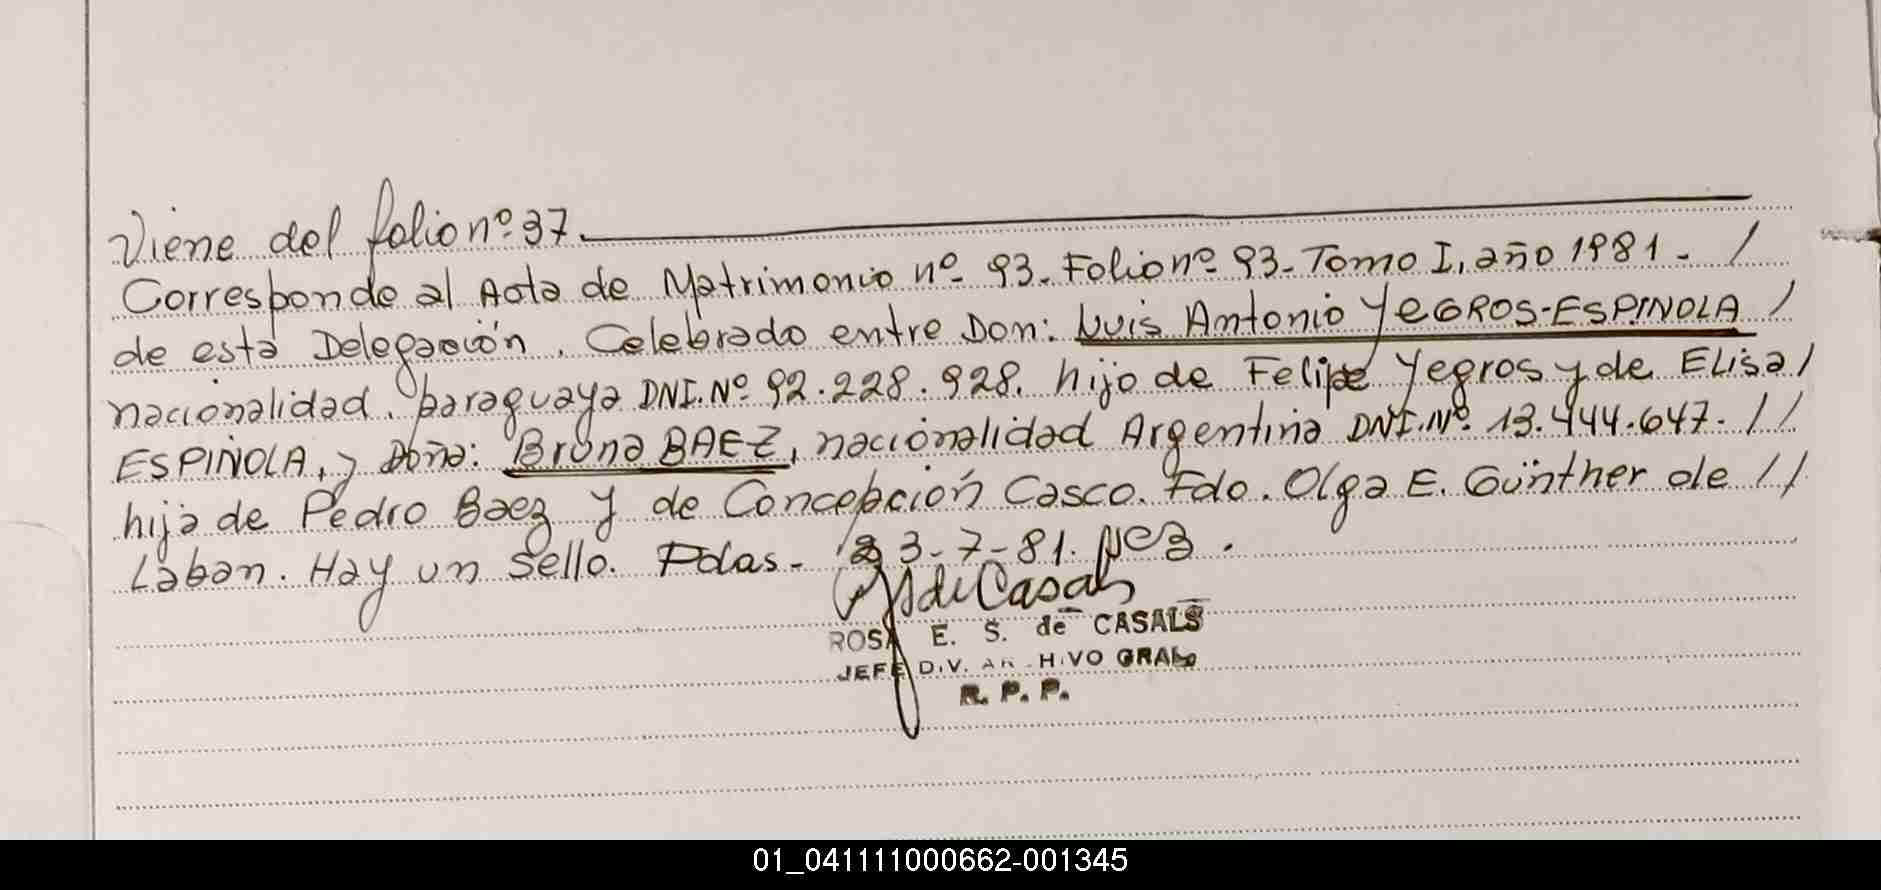 Viene del folio nº 37.
Corresponde al Acta de Matrimonio nº 93. Folio nº 93. Tomo I, año 1981. /
de esta Delegación. Celebrado entre Don: Luis Antonio YEGROS-ESPINOLA /
nacionalidad paraguaya DNI. Nº 92.228.928. hijo de Felipe Yegros y de Elisa /
ESPINOLA, y Doña: Bruna BAEZ, nacionalidad Argentina DNI. Nº 13.444.647. //
hija de Pedro Baez y de Concepción Casco. Fdo. Olga E. Günther de //
Laban. Hay un sello. Pdas. 23-7-81.
ROSA E. S. de CASALS
JEFE DIV. ARCHIVO GRAL.
R. P. P.
01_041111000662-001345